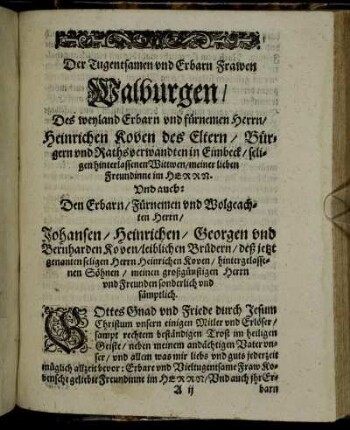 Der Tugentsamen vnd Erbarn Frawen
Walburgen/
Des weyland Erbarn vnd fürnemen Herrn/
Heinrichen Koven des Eltern/ Bür-
gern vnd Rathsverwandten in Eimbeck/ seli-
gen hinterlassenen Wittwen/ meiner lieben
Freundinne im HERRN.
Vnd auch:
Den Erbarn/ Fürnemen vnd Wolgeach-
ten Herrn/
Johansen/ Heinrichen/ Georgen vnd
Bernharden Koven/ leiblichen Brüdern/ deß jetzt
genanten seligen Herrn Heinrichen Koven/ hintergelasse-
nen Söhnen/ meinen großgünstigen Herrn
vnd Freunden sonderlich vnd
sämptlich.
GOttes Gnad vnd Friede durch Jesum
Christum vnsern einigen Mitler vnd Erlöser/
sampt rechtem beständigen Trost im heiligen
Geiste/ neben meinem andächtigen Vater vn-
ser/ vnd allem was mir liebs vnd guts jederzeit
müglich allzeit bevor: Erbare vnd Vieltugentsame Fraw Ko-
geliebte Freundinne im HERRN/ Vnd auch jhr Er-
A ij barn